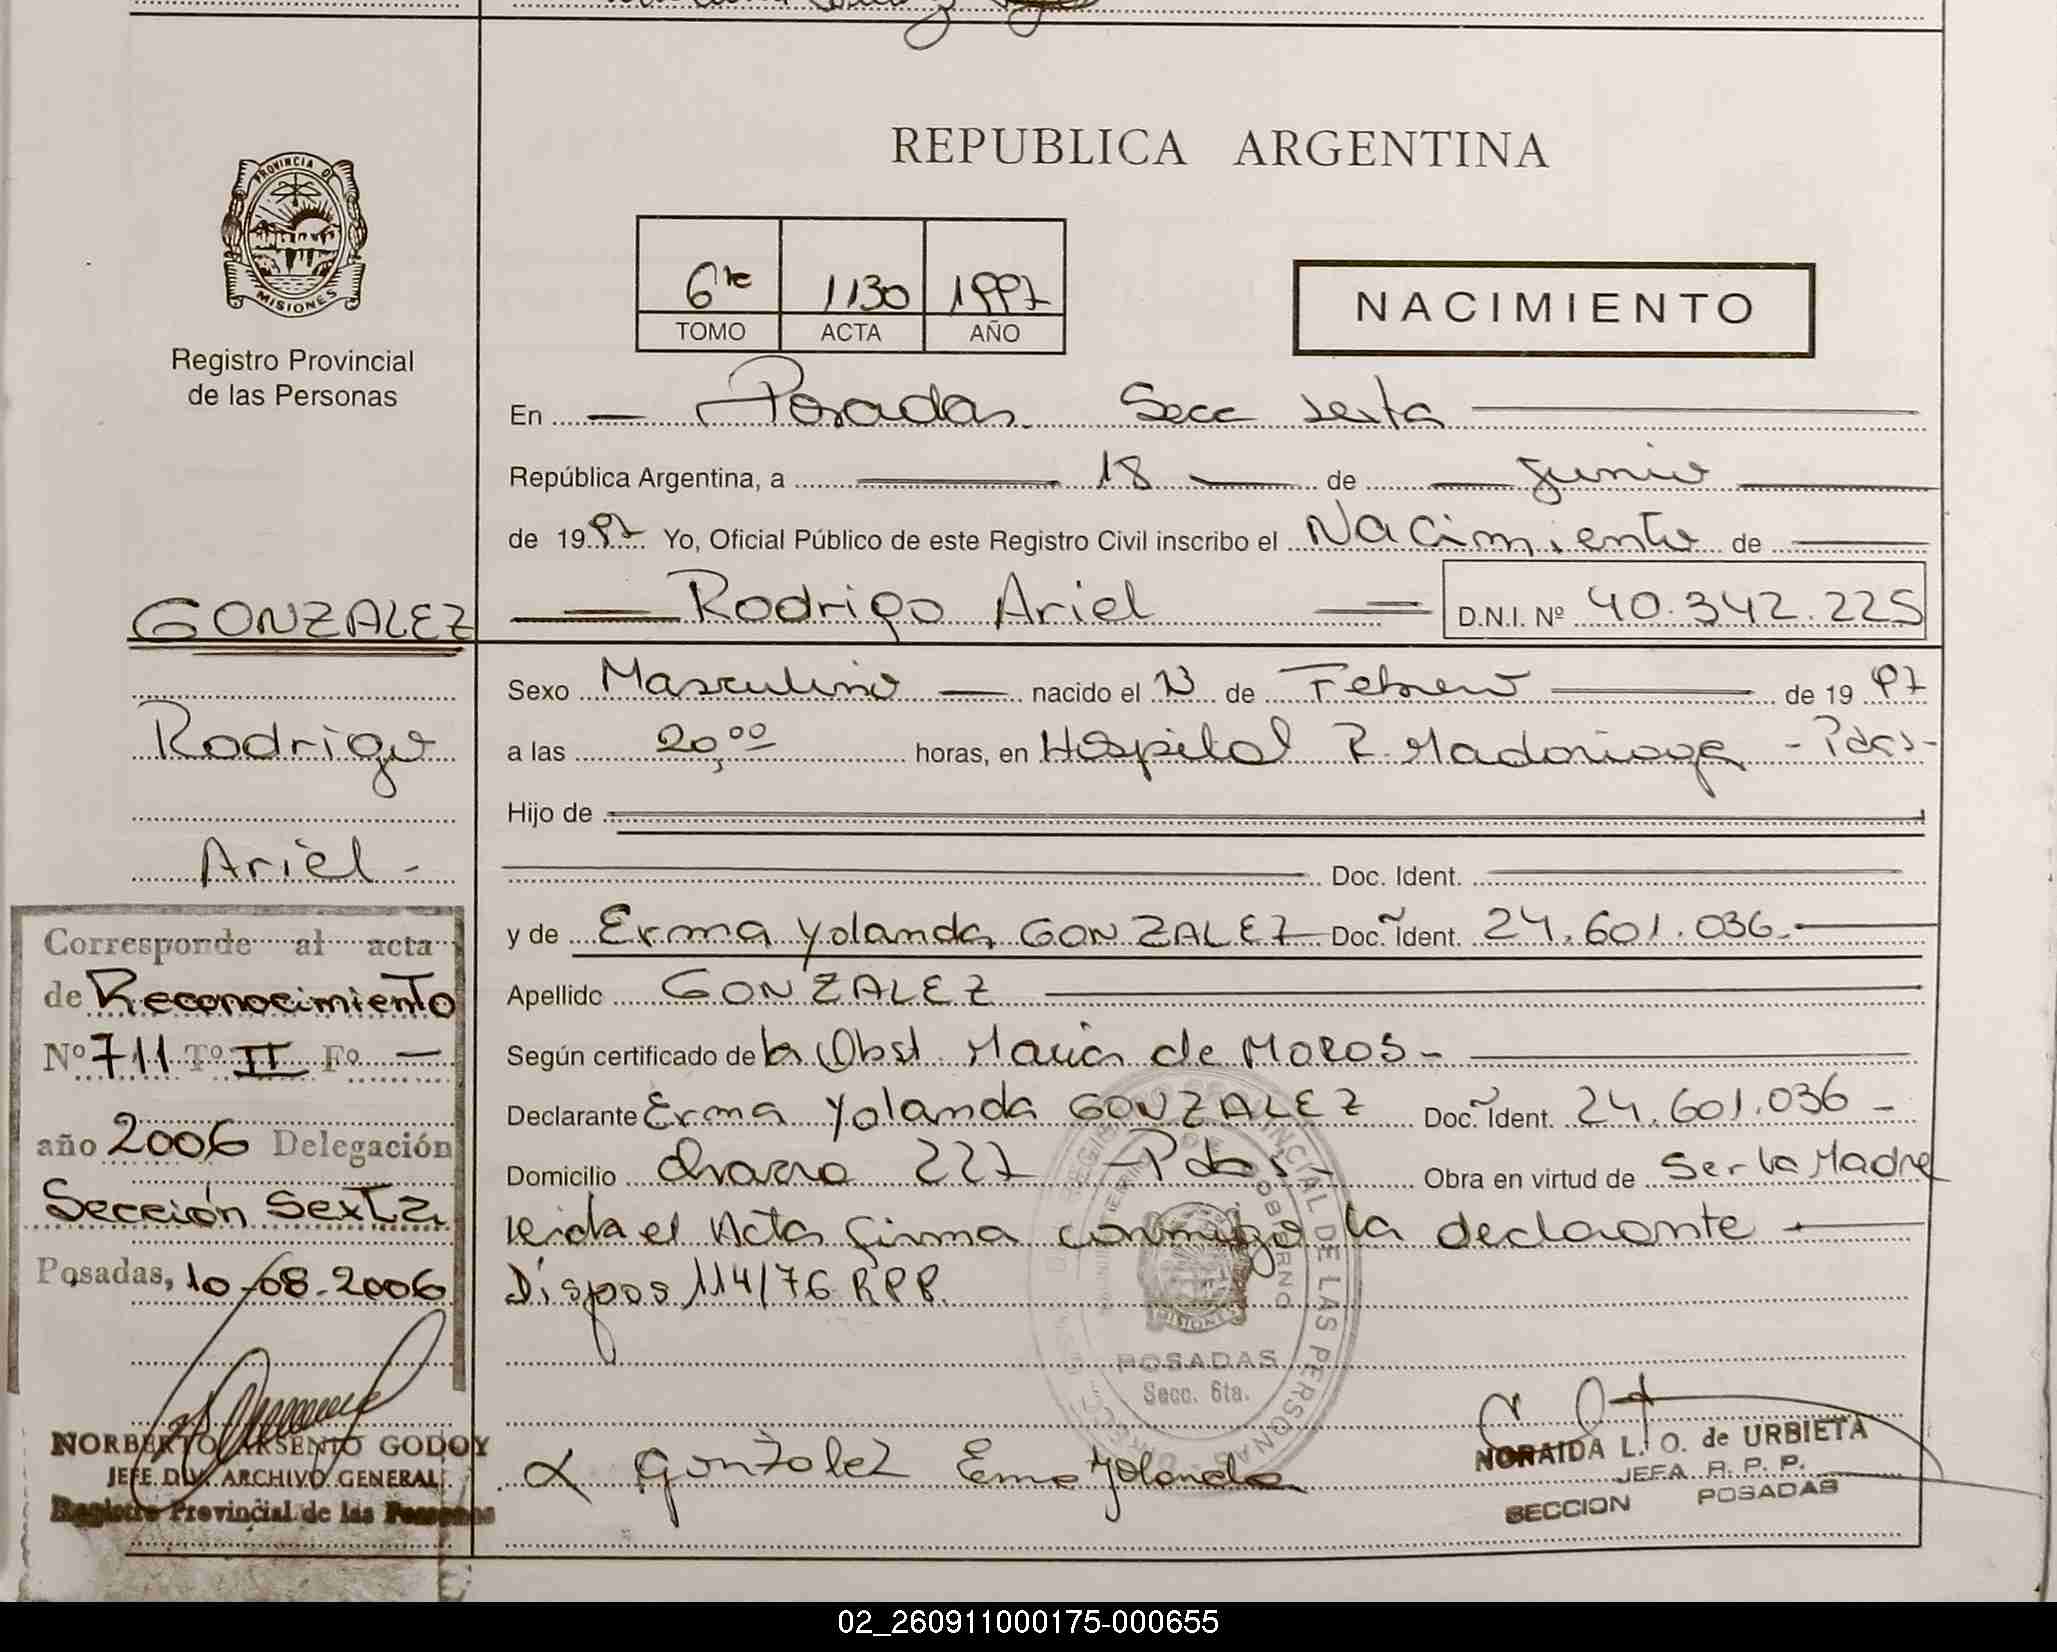 REPUBLICA ARGENTINA
PROVINCIA DE
MISIONES
Registro Provincial
de las Personas
6te 1130 1997
TOMO ACTA AÑO
NACIMIENTO
En Posadas Secc sexta
República Argentina, a 18 de junio
de 1997 Yo, Oficial Público de este Registro Civil inscribo el Nacimiento de
Rodrigo Ariel D.N.I. Nº 40.342.225
GONZALEZ
Rodrigo
Ariel -
Sexo Masculino nacido el de Febrero de 1997
a las 20,00 horas, en Hospital R Madariaga - Pdas -
Hijo de
Doc. Ident.
y de Erma Yolanda GONZALEZ Doc. Ident. 24.601.036.
Apellido GONZALEZ
Según certificado de la Obst. Maria de MOROS -
Declarante Erma Yolanda GONZALEZ Doc. Ident. 24.601.036 -
Domicilio 227 - Pdas - Obra en virtud de Ser la Madre
leida el Acta firma conmigo la declarante
Dispos 114/76 RPP.
Corresponde al acta
de Reconocimiento
Nº 711 Tº II Fº —
año 2006 Delegación
Sección Sexta
Posadas, 10-08-2006
NORBERTO ARSENIO GODOY
JEFE DIV. ARCHIVO GENERAL
Registro Provincial de las Personas
REGISTRO PROVINCIAL DE LAS PERSONAS
MINISTERIO DE GOBIERNO
MISIONES
POSADAS
Secc. 6ta.
Gonzalez Erma Yolanda
NORAIDA L. O. de URBIETA
JEFA R. P. P.
SECCION POSADAS
02_260911000175-000655